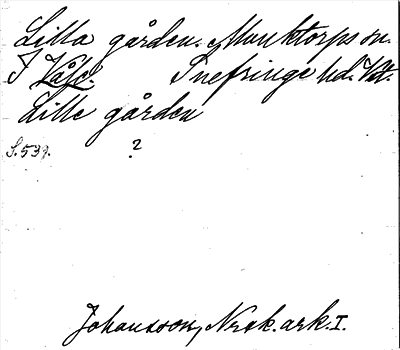 Lilla gården. Munktorps sn.
I Våld. Snefringe hd. Vstm.
Lille gården
S. 537. ?
Johansson, Nrsk. ark. I.